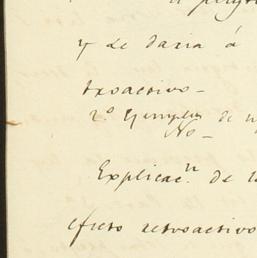 el
y se daria á
txoactivo-
2.º Ejemplos de
No-
Explicac.n de l
efecto retroactivo